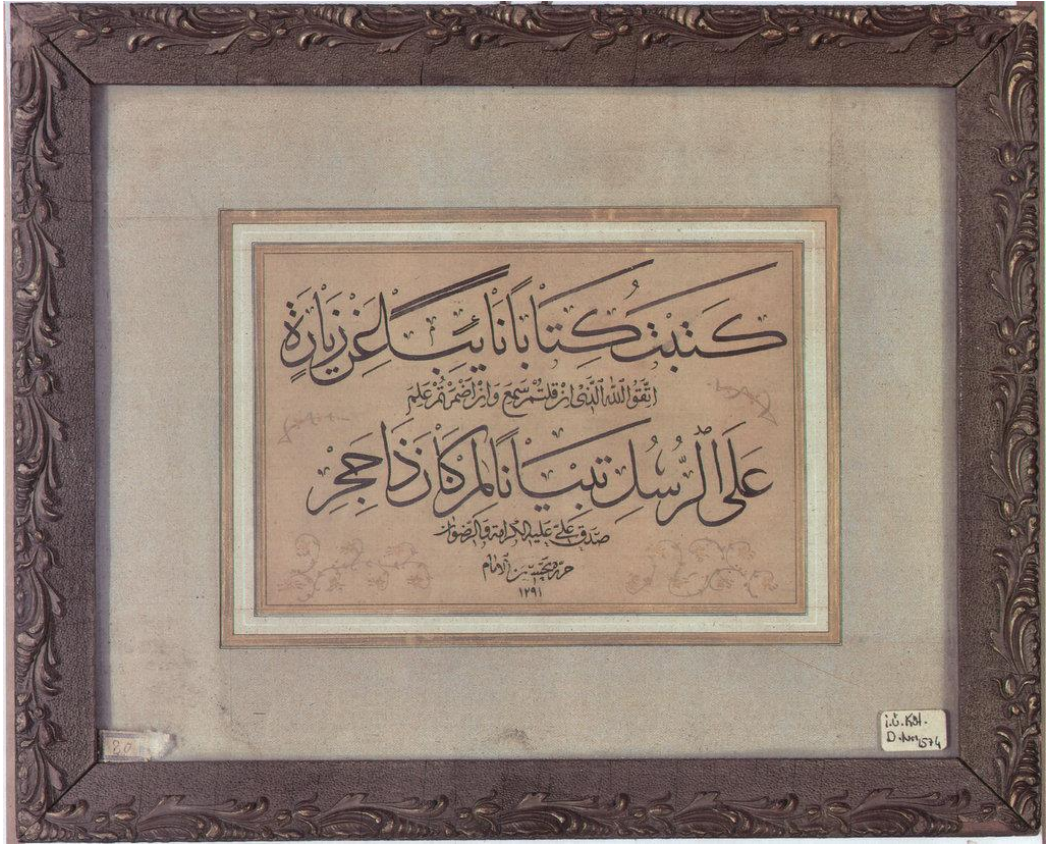 كَتَبْتُ كِتَابًا نَائِبًا عَنْ زِيَارَةٍ
اتَّقُوا اللّٰهَ الَّذِى اِنْ قُلْتُمْ سَمِعَ وَاِنْ اَضْمَرْتُمْ عَلِمَ
عَلَى الرُّسُلِ تِبْيَانًا لِمَنْ كَانَ ذَا حِجْرِ
صدق على عليه الكرامة والرضوان
حرره تحسين الامام
١٢٩١
80
İ.Ü. Ktp.
D. No 1574